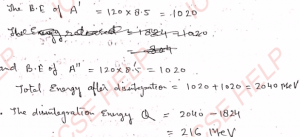 The B.E of A' = 120 x 8.5 = 1020
The Energy released = 1824 - 1020
= 804
and B.E of A'' = 120 x 8.5 = 1020
Total Energy after disintegration = 1020 + 1020 = 2040 MeV
. The disintegration Energy Q = 2040 - 1824
= 216 MeV